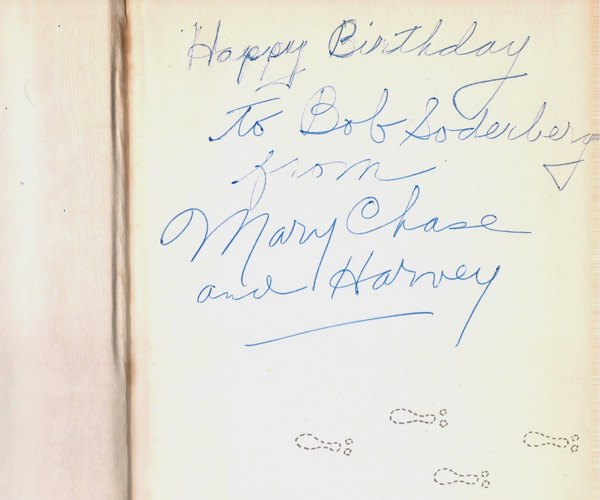 Happy Birthday
to Bob Soderberg
from
Mary Chase
and Harvey